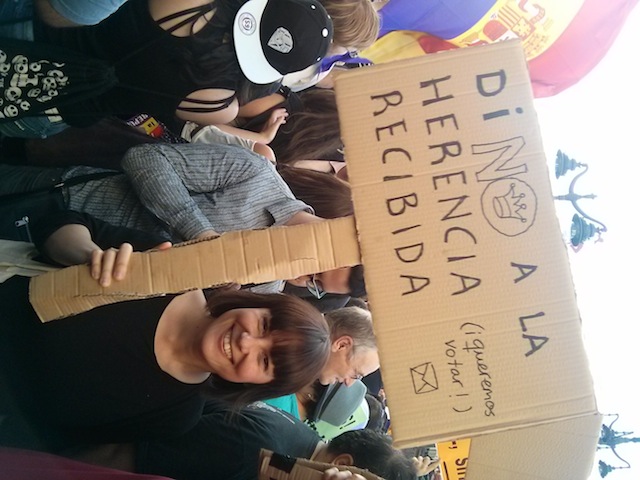 Di NO A LA
HERENCIA
RECIBIDA
(¡queremos
votar!)